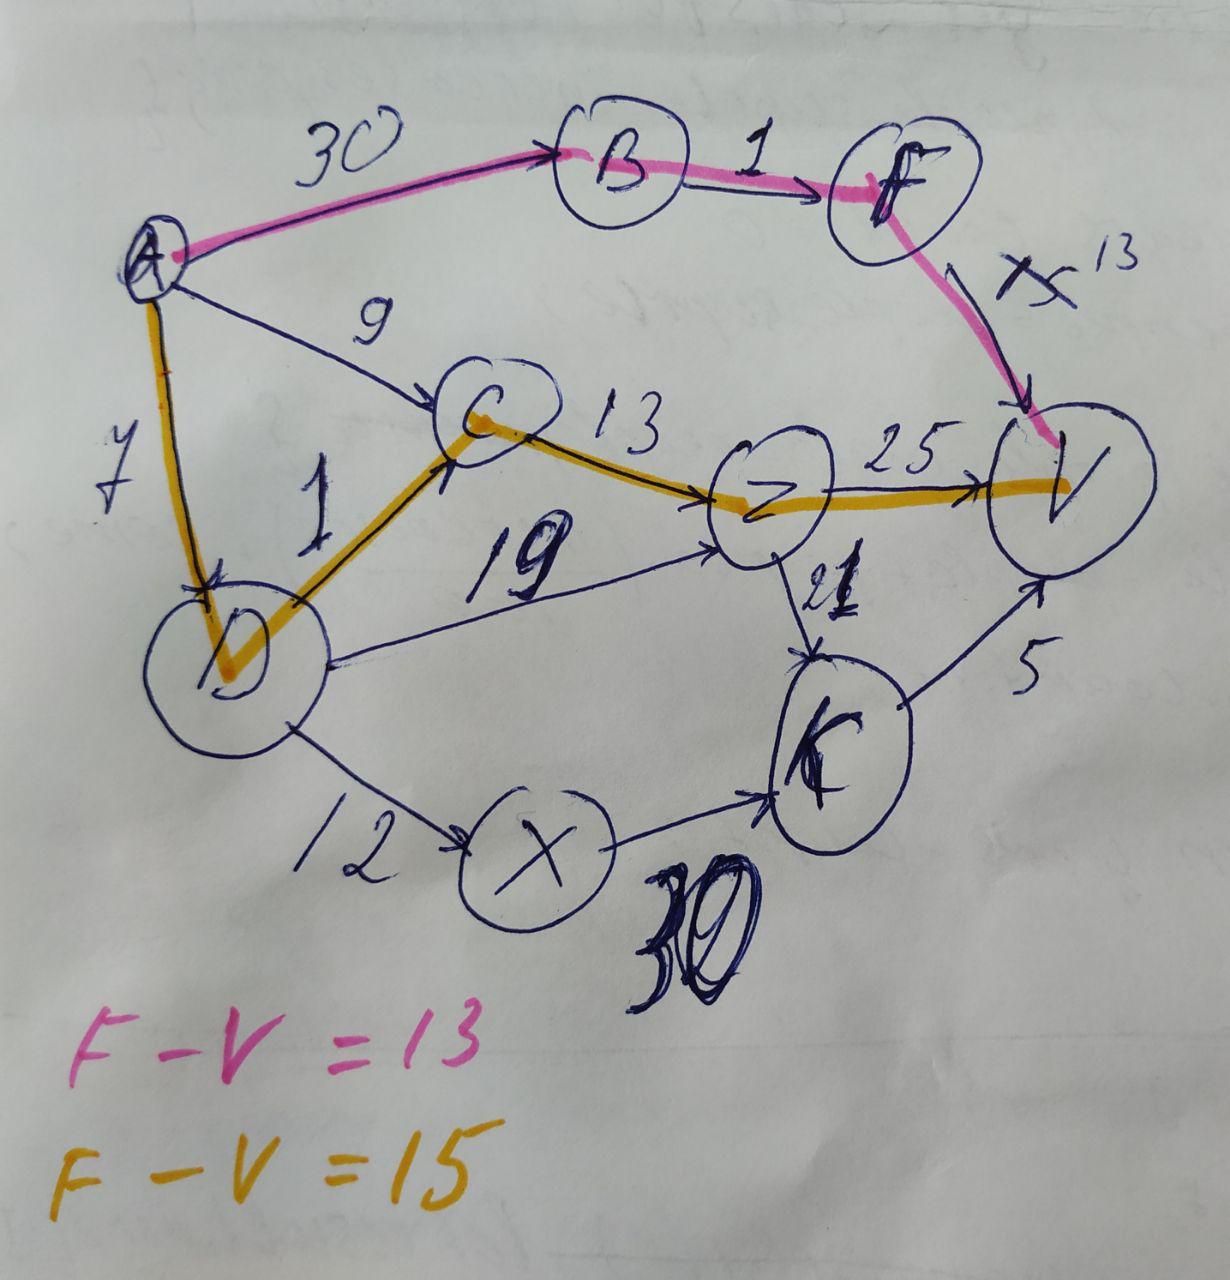 30
B
1
F
A
13
9
C
13
25
Z
V
7
1
19
21
D
5
K
12
X
30
F - V = 13
F - V = 15